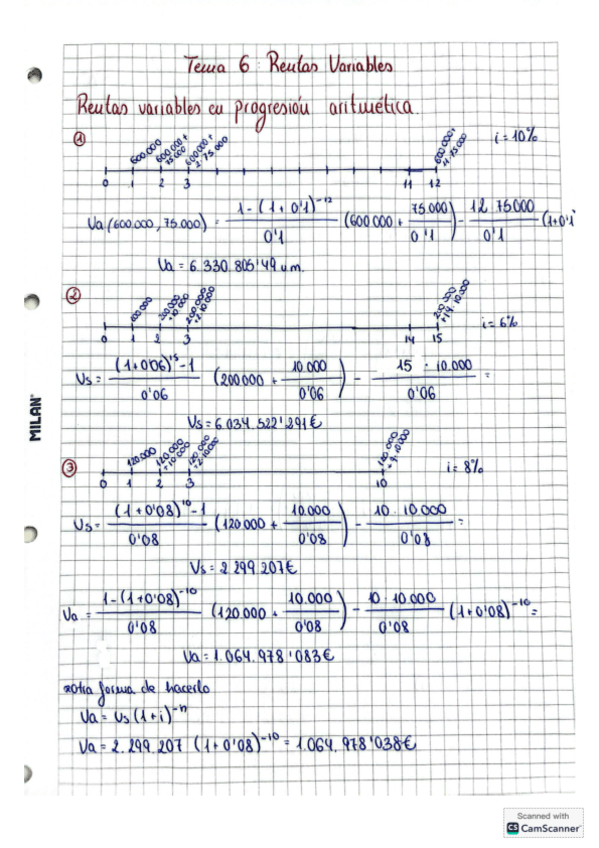 Tema 6: Rentas Variables
Rentas variables en progresión aritmética.
① 600.000 600.000+75.000 600.000+2·75.000 600.000+11·75.000 i=10%
0 1 2 3 11 12
Va(600.000, 75.000) = 1-(1+0'1)^-12 / 0'1 (600.000 + 75.000 / 0'1) - 12·75000 / 0'1 (1+0'1
Va = 6.330.805'49 u.m.
② 200.000 200.000+10.000 200.000+2·10.000 200.000+14·10.000 i=6%
0 1 2 3 14 15
Vs = (1+0'06)^15-1 / 0'06 (200000 + 10.000 / 0'06) - 15·10.000 / 0'06 =
Vs = 6.034.522'291€
③ 120.000 120.000+10.000 120.000+2·10.000 120.000+9·10.000 i=8%
0 1 2 3 10
Vs = (1+0'08)^10-1 / 0'08 (120.000 + 10.000 / 0'08) - 10·10.000 / 0'08 =
Vs = 2.299.207€
Va = 1-(1+0'08)^-10 / 0'08 (120.000 + 10.000 / 0'08) - 10·10.000 / 0'08 (1+0'08)^-10 =
Va = 1.064.978'083€
otra forma de hacerlo
Va = Vs(1+i)^-n
Va = 2.299.207 (1+0'08)^-10 = 1.064.978'038€
MILAN
Scanned with
CS CamScanner